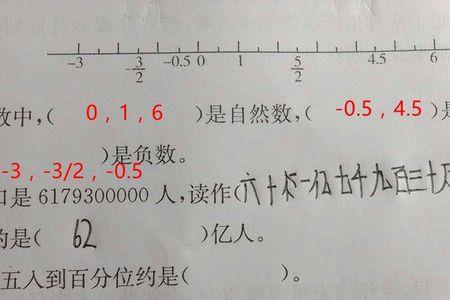 -3 -3/2 -0.5 0 1 5/2 4.5 6
数中,( 0, 1, 6 )是自然数,( -0.5, 4.5 )是
)是负数。
-3, -3/2, -0.5
口是 6179300000 人,读作(六十一亿七千九百三十万
约是( 62 )亿人。
五入到百分位约是( )。